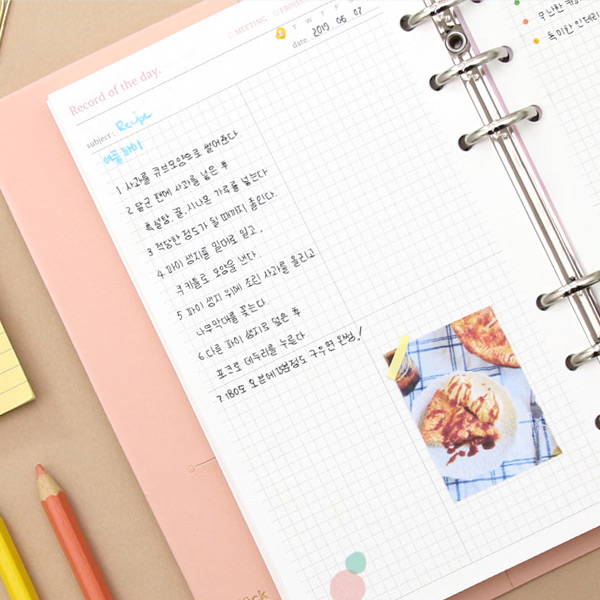 MEETING
T W T F
date. 2019. 06. 07
Record of the day.
subject : Recipe
애플파이
1 사과를 큐브모양으로 썰어준다
2 달군 팬에 사과를 넣은 후
흑설탕, 꿀, 시나몬 가루를 넣는다
3 적당한 정도가 될 때까지 졸인다.
4 파이 생지를 밀대로 밀고,
쿠키틀로 모양을 낸다.
5 파이 생지 위에 조린 사과를 올리고
나무막대를 꽂는다.
6 다른 파이 생지로 덮은 후
포크로 테두리를 누른다
7 180도 오븐에 정도 구우면 완성!
무난한
독이한